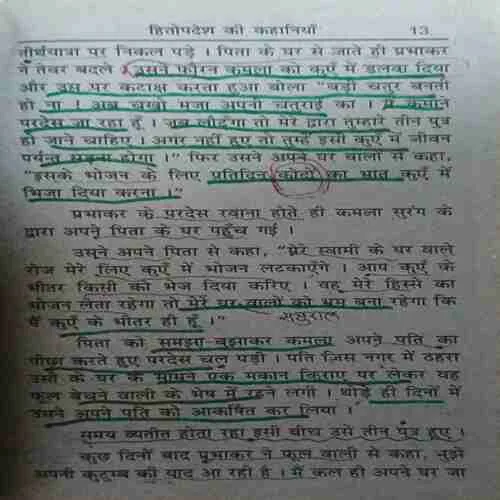 हितोपदेश की कहानियाँ 13
तीर्थयात्रा पर निकल पड़े । पिता के घर से जाते ही प्रभाकर
ने तेवर बदले । उसने फौरन कमला को कुएँ में डलवा दिया
और उस पर कटाक्ष करता हुआ बोला "बड़ी चतुर बनती
हो ना । अब चखो मजा अपनी चतुराई का । मैं कमाने
परदेस जा रहा हूँ । जब लौटूंगा तो मेरे द्वारा तुम्हारे तीन पुत्र
हो जाने चाहिए । अगर नहीं हुए तो तुम्हें इसी कुएँ में जीवन
पर्यन्त सड़ना होगा ।" फिर उसने अपने घर वालों से कहा,
"इसके भोजन के लिए प्रतिदिन कोदों का भात कुएँ में
भिजा दिया करना ।"
प्रभाकर के परदेस रवाना होते ही कमला सुरंग के
द्वारा अपने पिता के घर पहुँच गई ।
उसने अपने पिता से कहा, "मेरे स्वामी के घर वाले
रोज मेरे लिए कुएँ में भोजन लटकाएँगे । आप कुएँ के
भीतर किसी को भेज दिया करिए । वह मेरे हिस्से का
भोजन लेता रहेगा तो मेरे घर वालों को भ्रम बना रहेगा कि
मैं कुएँ के भीतर ही हूँ ।" ससुराल
पिता को समझा बुझाकर कमला अपने पति का
पीछा करते हुए परदेस चल पड़ी । पति जिस नगर में ठहरा
उसी के घर के सामने एक मकान किराए पर लेकर वह
फूल बेचने वाली के भेष में रहने लगी । थोड़े ही दिनों में
उसने अपने पति को आकर्षित कर लिया ।
समय व्यतीत होता रहा इसी बीच उसे तीन पुत्र हुए ।
कुछ दिनों बाद प्रभाकर ने फूल वाली से कहा, मुझे
अपनी कुटुम्ब की याद आ रही है । मैं कल ही अपने घर जा